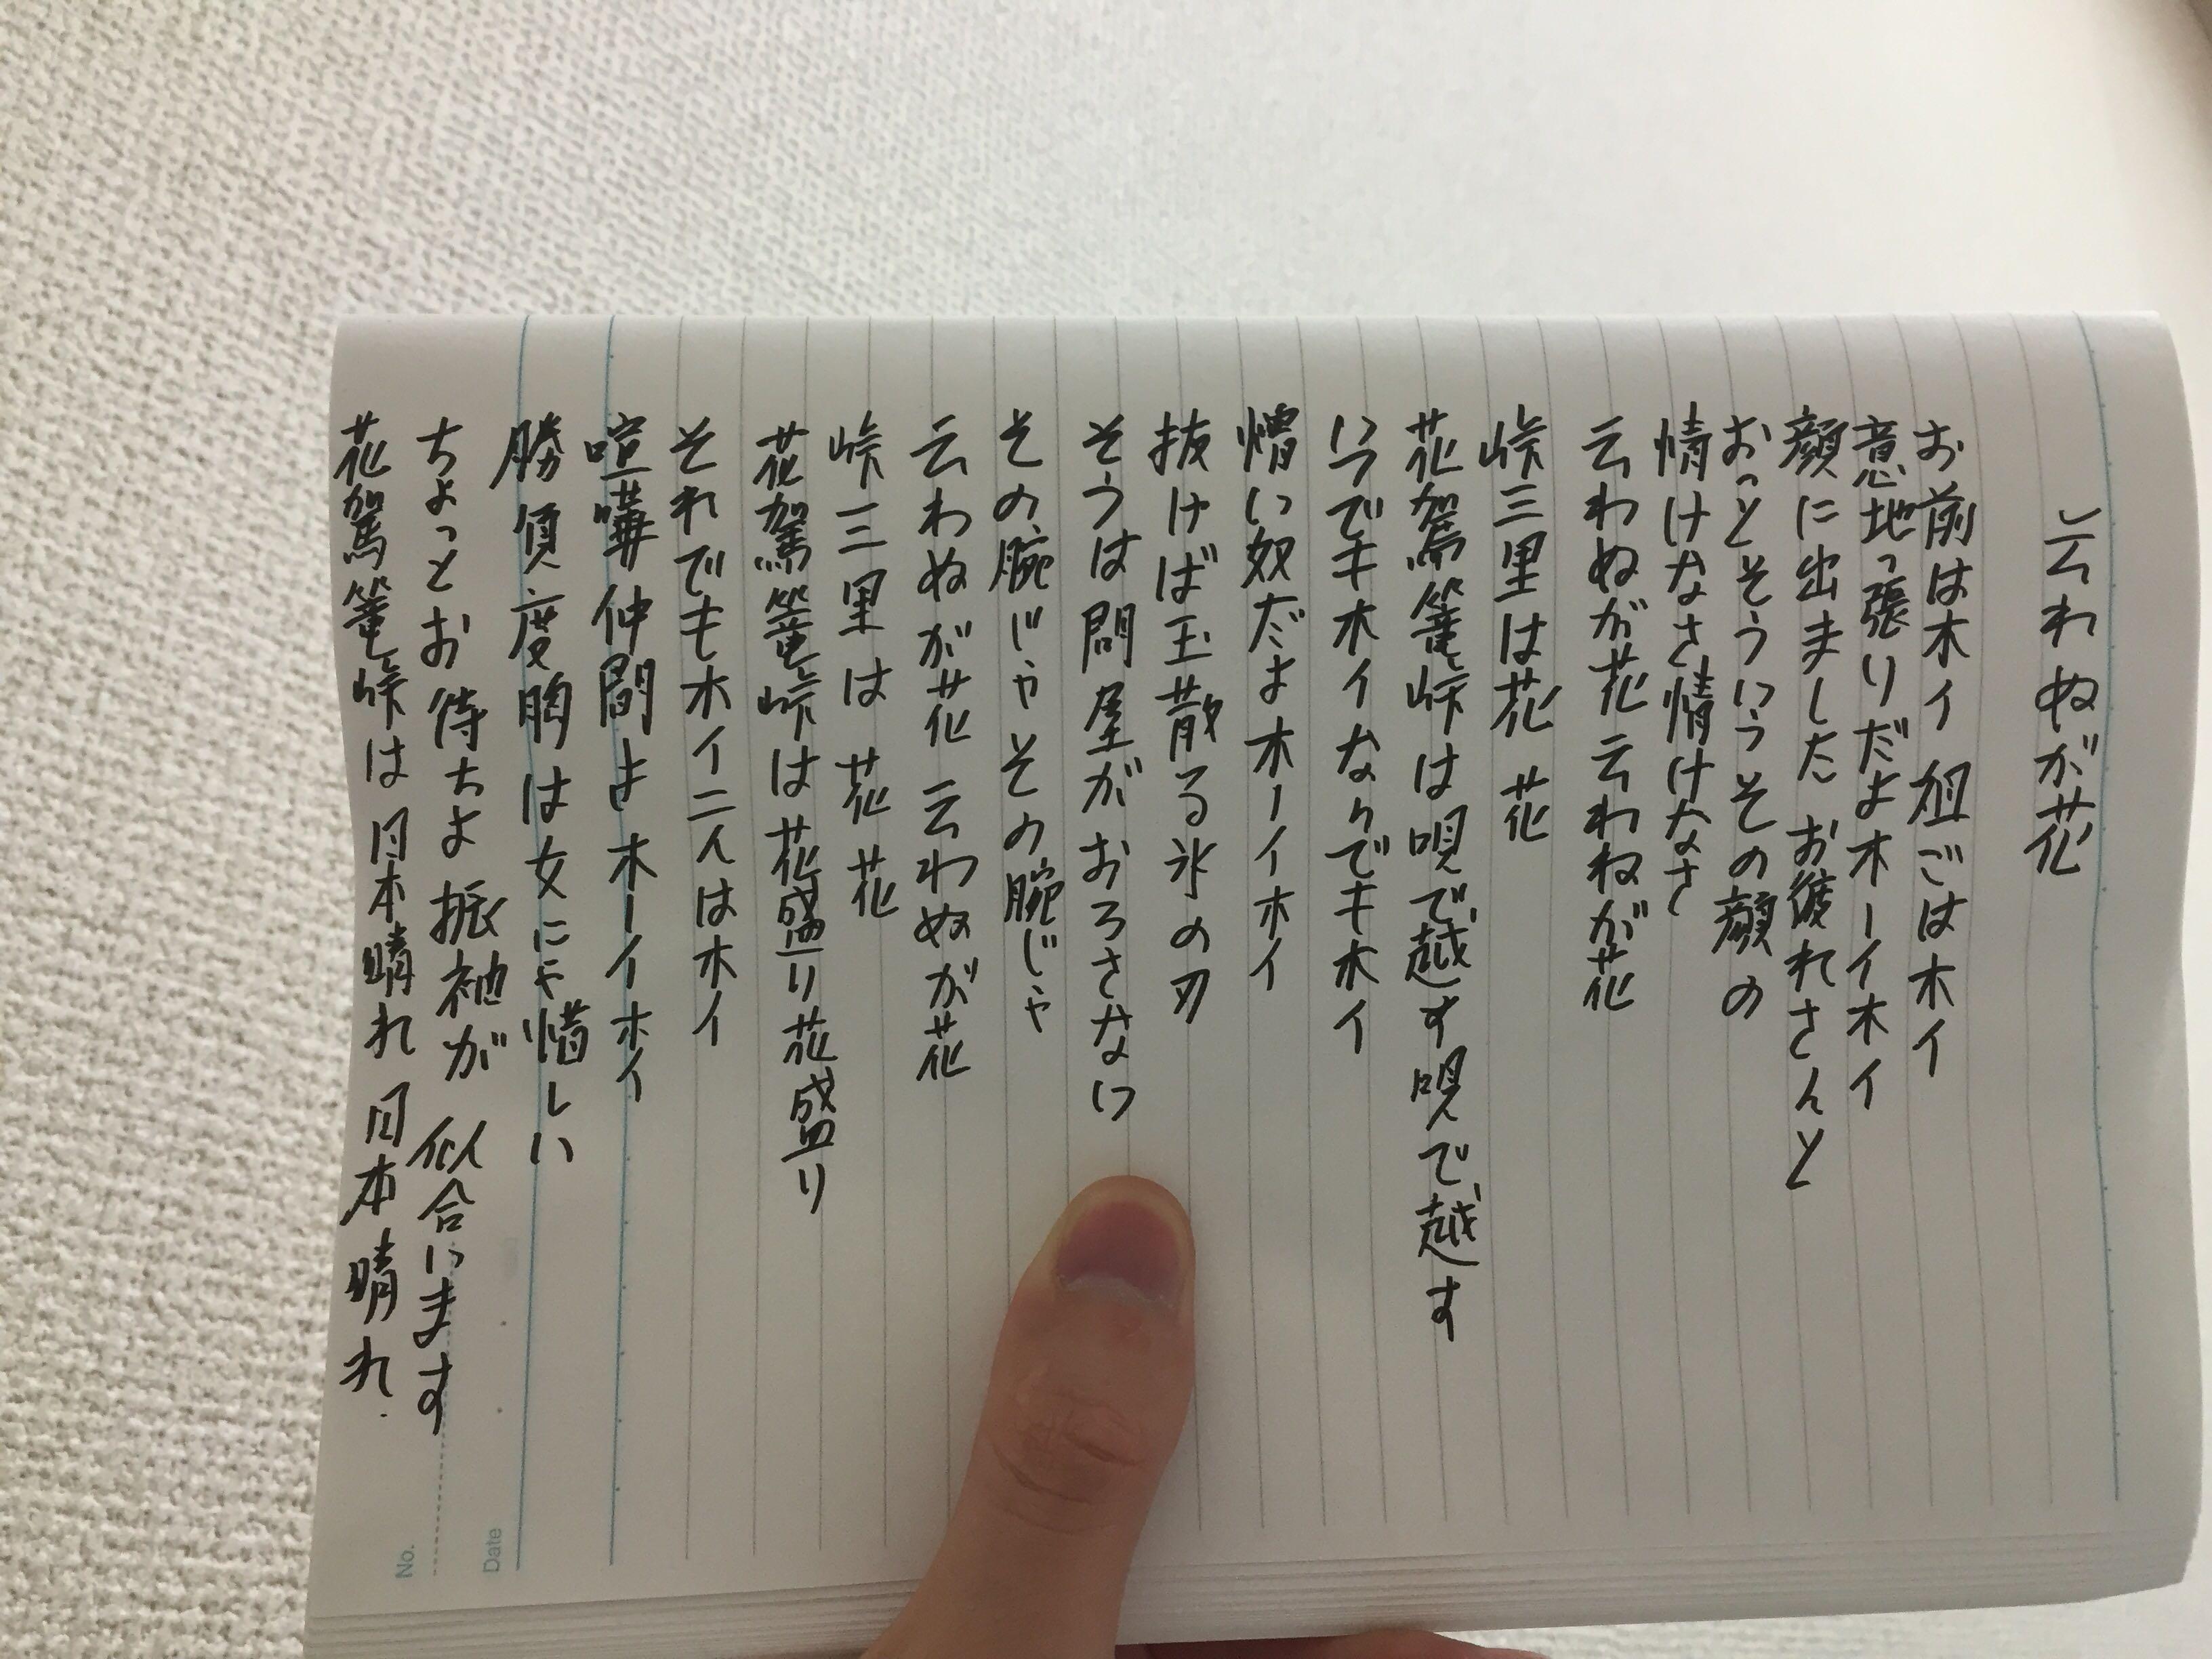 云わぬが花
お前はホイ 俎ごはホイ
意地っ張りだよホーイホイ
顔に出ました お疲れさんと
おっとそういうその顔の
情けなさ情けなさ
云わぬが花 云わねが花
峠三里は花 花
花駕篭峠は唄で越す唄で越す
いつでもホイなりでもホイ
憎い奴だよホーイホイ
抜けば玉散る氷の刃
そうは問屋がおろさない
その腕じゃその腕じゃ
云わぬが花 云わぬが花
峠三里は 花 花
花駕篭峠は花盛り花盛り
それでもホイ二人はホイ
喧嘩仲間よホーイホイ
勝負度胸は女にゃ惜しい
ちょっとお待ちよ振袖が 似合います
花駕篭峠は日本晴れ 日本晴れ
No.
Date